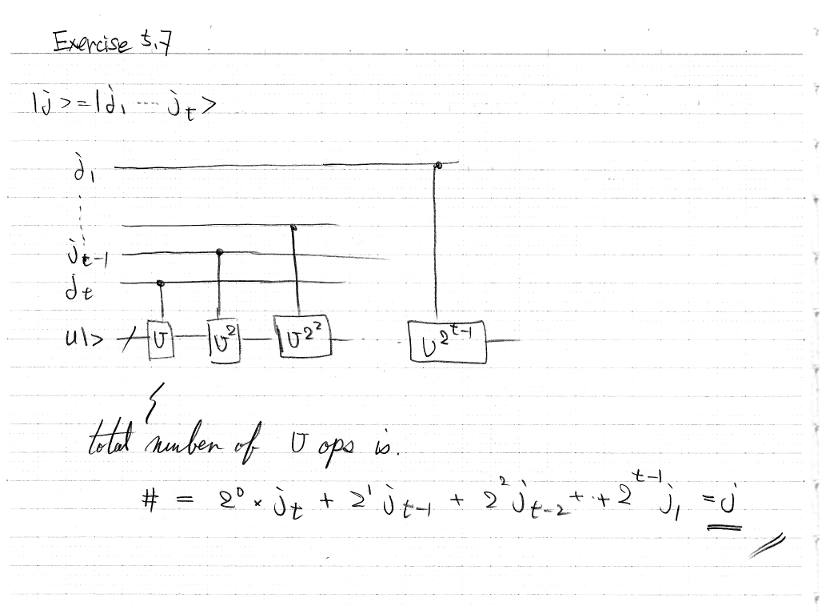 Exercise 5.7
|j>=|j₁ ---- j_t>
j₁
j_{t-1}
j_t
u|> U U² U^{2²} ... U^{2^{t-1}}
total number of U ops is.
# = 2⁰ × j_t + 2¹ j_{t-1} + 2² j_{t-2} + ·· + 2^{t-1} j₁ = j